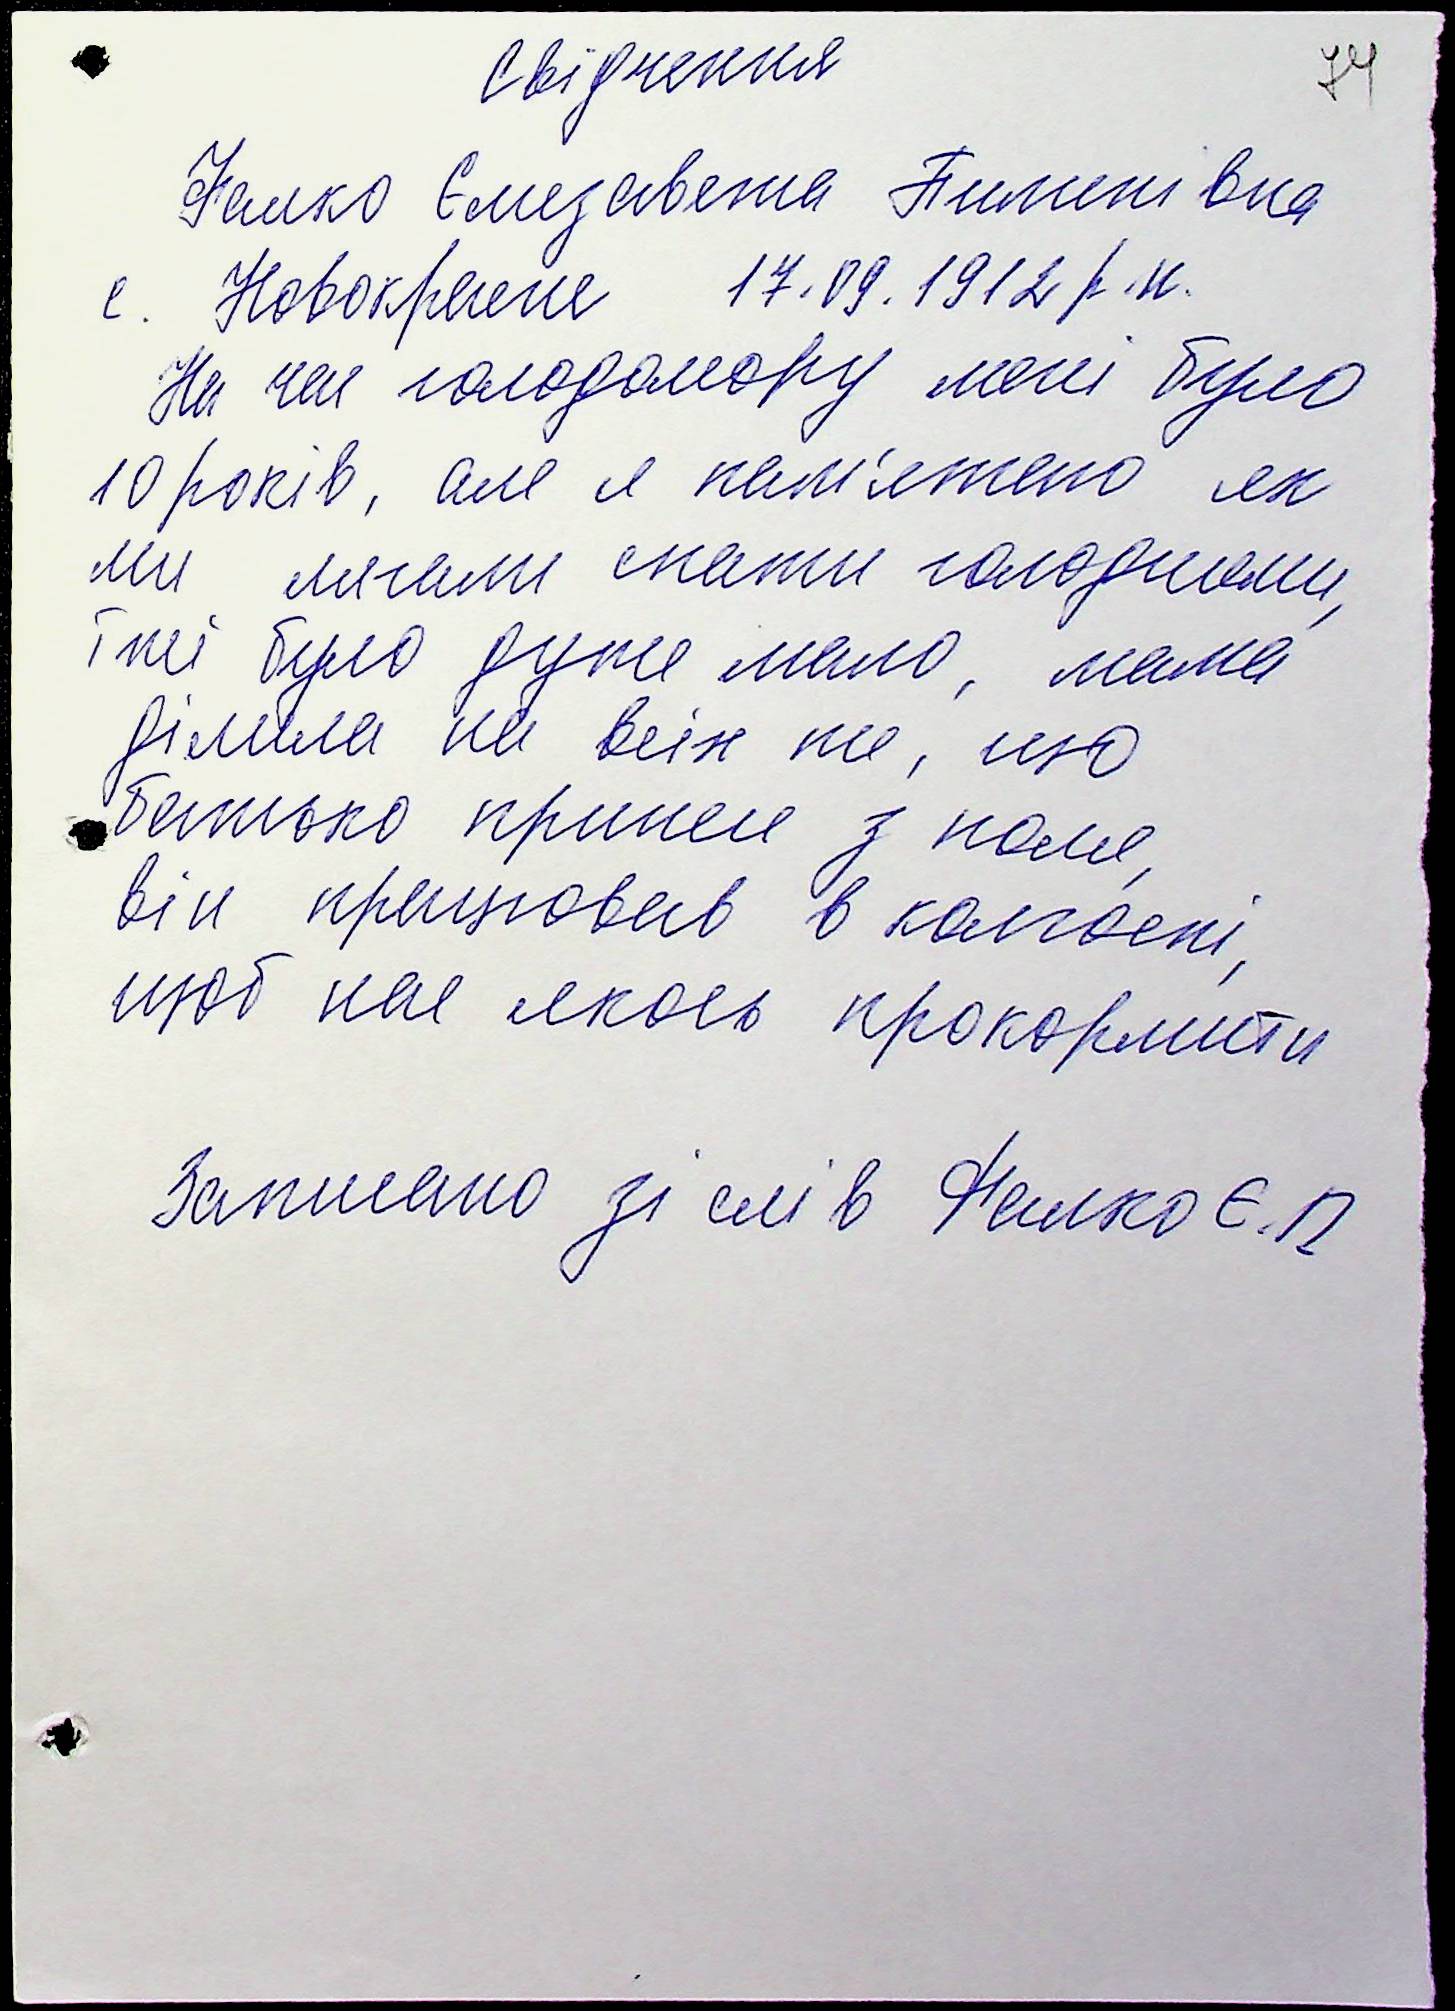 Свідчення
74
Фалко Єлезавета Пименівна
с. Новокрасне 17.09.1912 р.н.
На час голодомору мені було
10 років, але я пам'ятаю як
ми лягали спати голодними,
їжі було дуже мало, мама
ділила на всіх те, що
батько принесе з поля,
він працював в колгоспі,
щоб нас якось прокормити
Записано зі слів Фалко Є.П